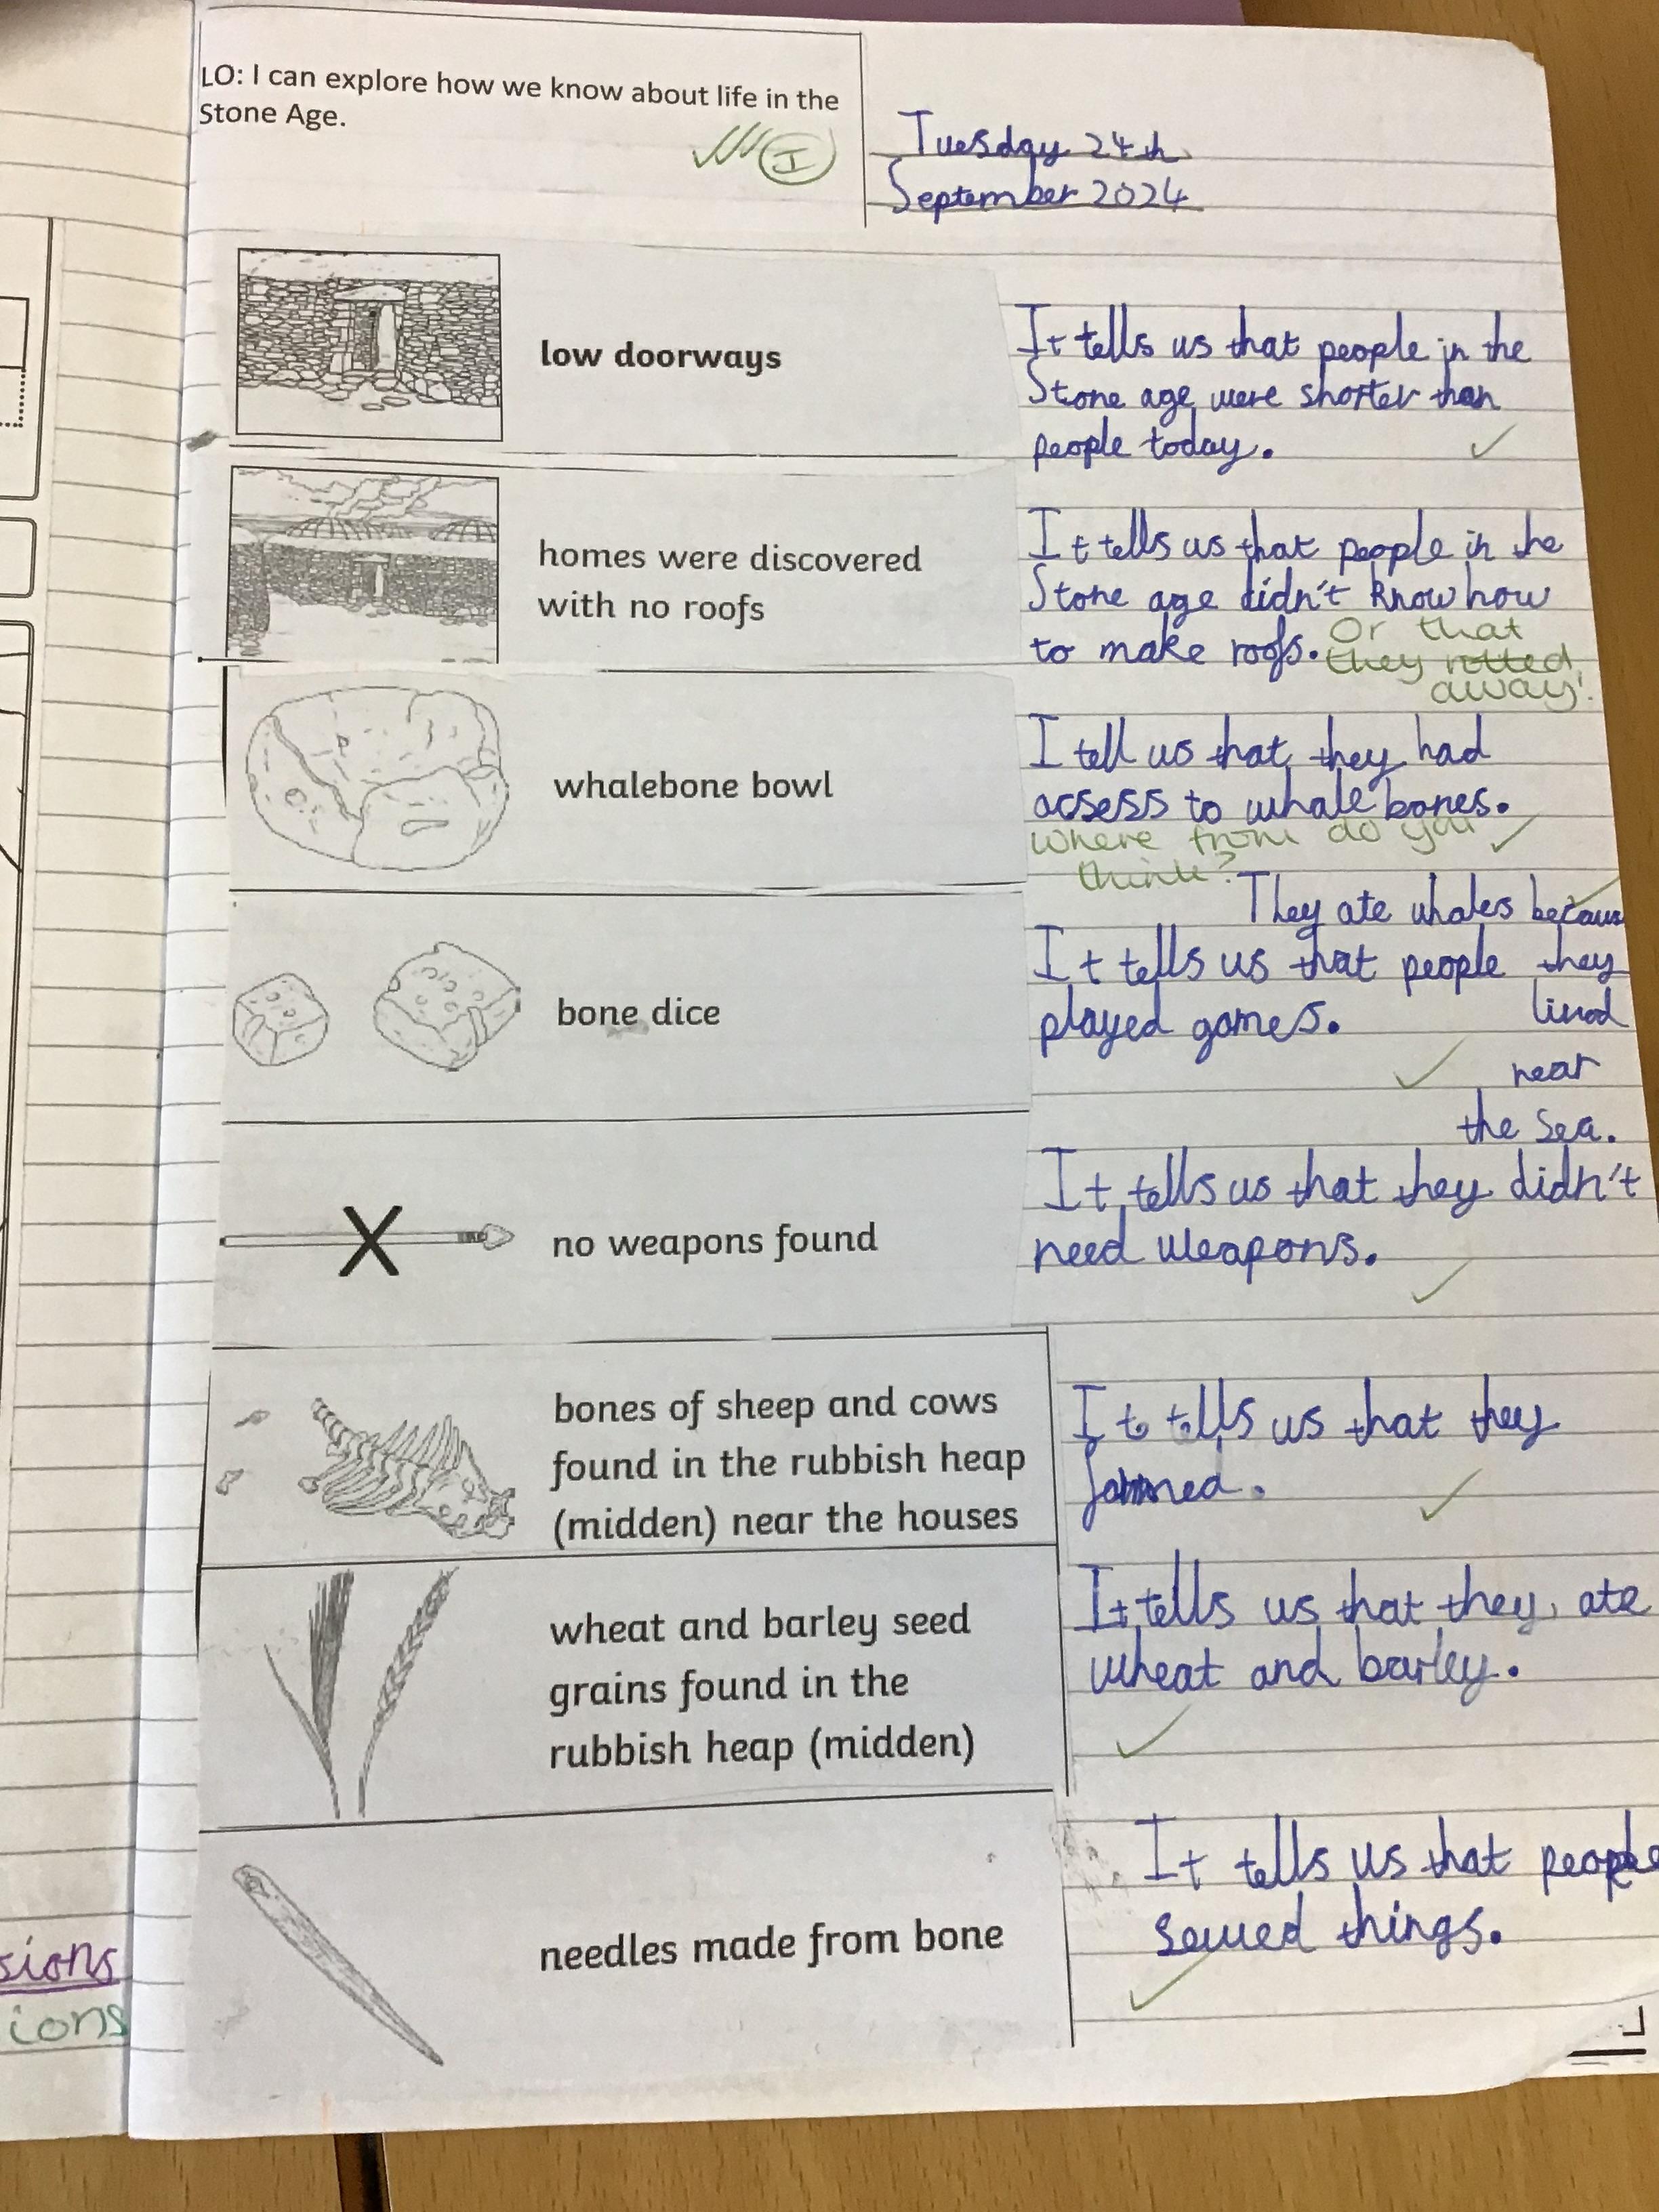 LO: I can explore how we know about life in the
Stone Age.
I
Tuesday 24th
September 2024
low doorways
It tells us that people in the
Stone age were shorter than
people today.
homes were discovered
with no roofs
It tells us that people in the
Stone age didn't know how
to make roofs.
Or that
they rotted
away!
whalebone bowl
I tell us that they had
acsess to whale bones.
Where from do you
think?
They ate whales becaus
they
lived
near
the sea.
bone dice
It tells us that people
played games.
no weapons found
It tells us that they didn't
need weapons.
bones of sheep and cows
found in the rubbish heap
(midden) near the houses
It tells us that they
farmed.
wheat and barley seed
grains found in the
rubbish heap (midden)
It tells us that they ate
wheat and barley.
needles made from bone
It tells us that people
sewed things.
sions
ions